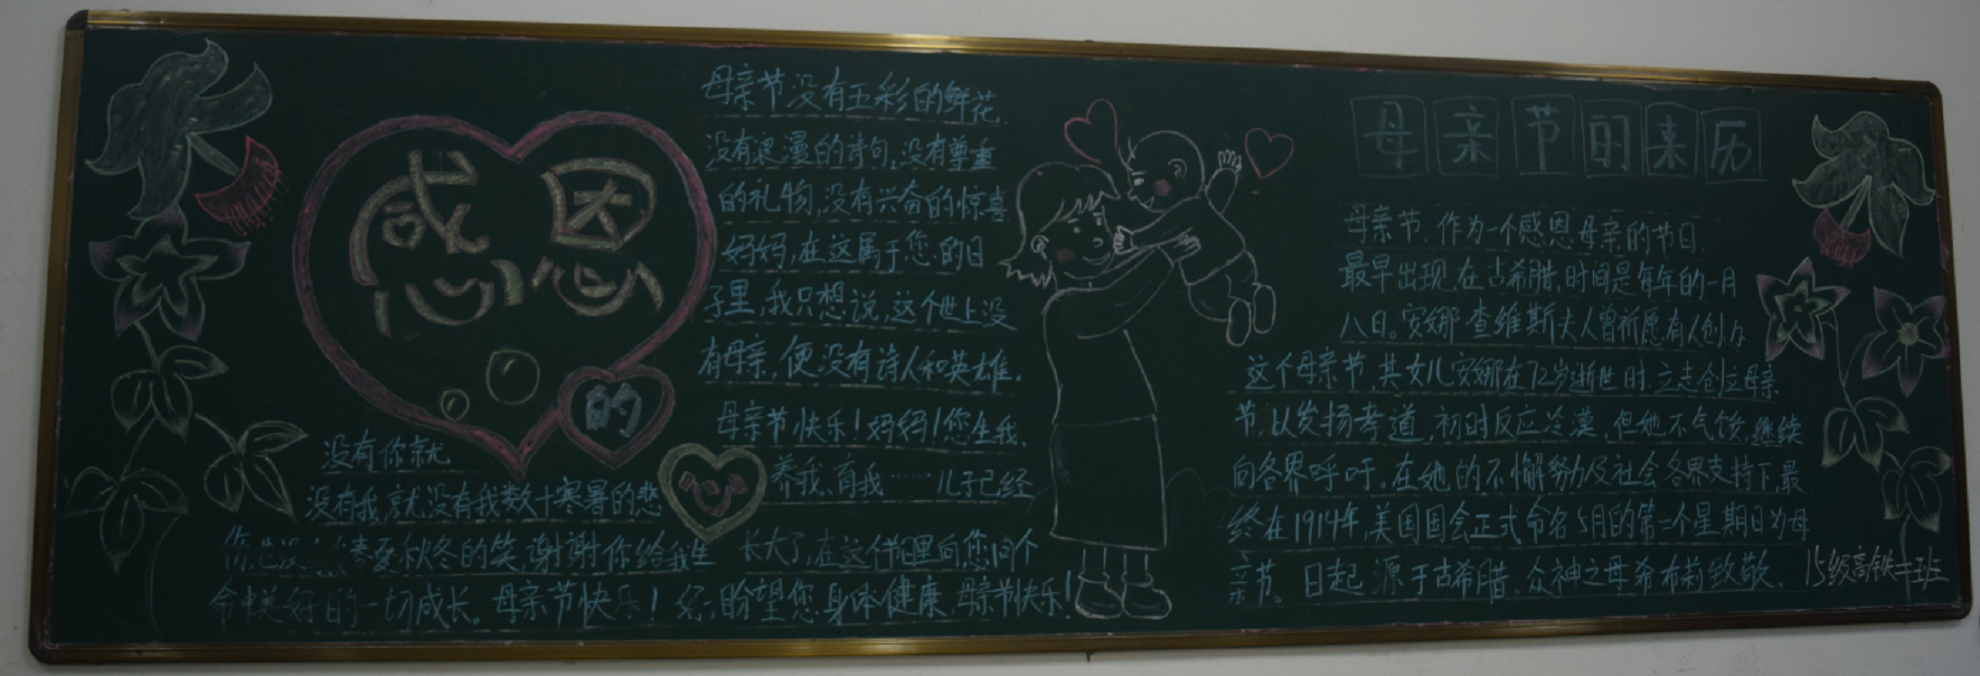 感恩
的
心
没有你就
没有我,就没有我数十寒暑的悲
伤,也没 春夏秋冬的笑,谢谢你给我生
命中美好的一切成长。母亲节快乐!
母亲节没有五彩的鲜花,
没有浪漫的诗句,没有尊重
的礼物,没有兴奋的惊喜
妈妈,在这属于您的日
子里,我只想说,这个世上没
有母亲,便没有诗人和英雄。
母亲节快乐!妈妈!您生我、
养我、育我……儿子已经
长大了,在这个节里向您问个
好,盼望您身体健康,母亲节快乐!
母亲节的来历
母亲节,作为一个感恩母亲的节日,
最早出现在古希腊,时间是每年的一月
八日。安娜·查维斯夫人曾祈愿有人创办
这个母亲节,其女儿安娜在72岁逝世时,立志创立母亲
节,以发扬孝道,初时反应冷漠,但她不气馁,继续
向各界呼吁。在她的不懈努力及社会各界支持下,最
终在1914年,美国国会正式命名5月的第二个星期日为母
亲节。日起源于古希腊,众神之母希布莉致敬。
15级高铁二班